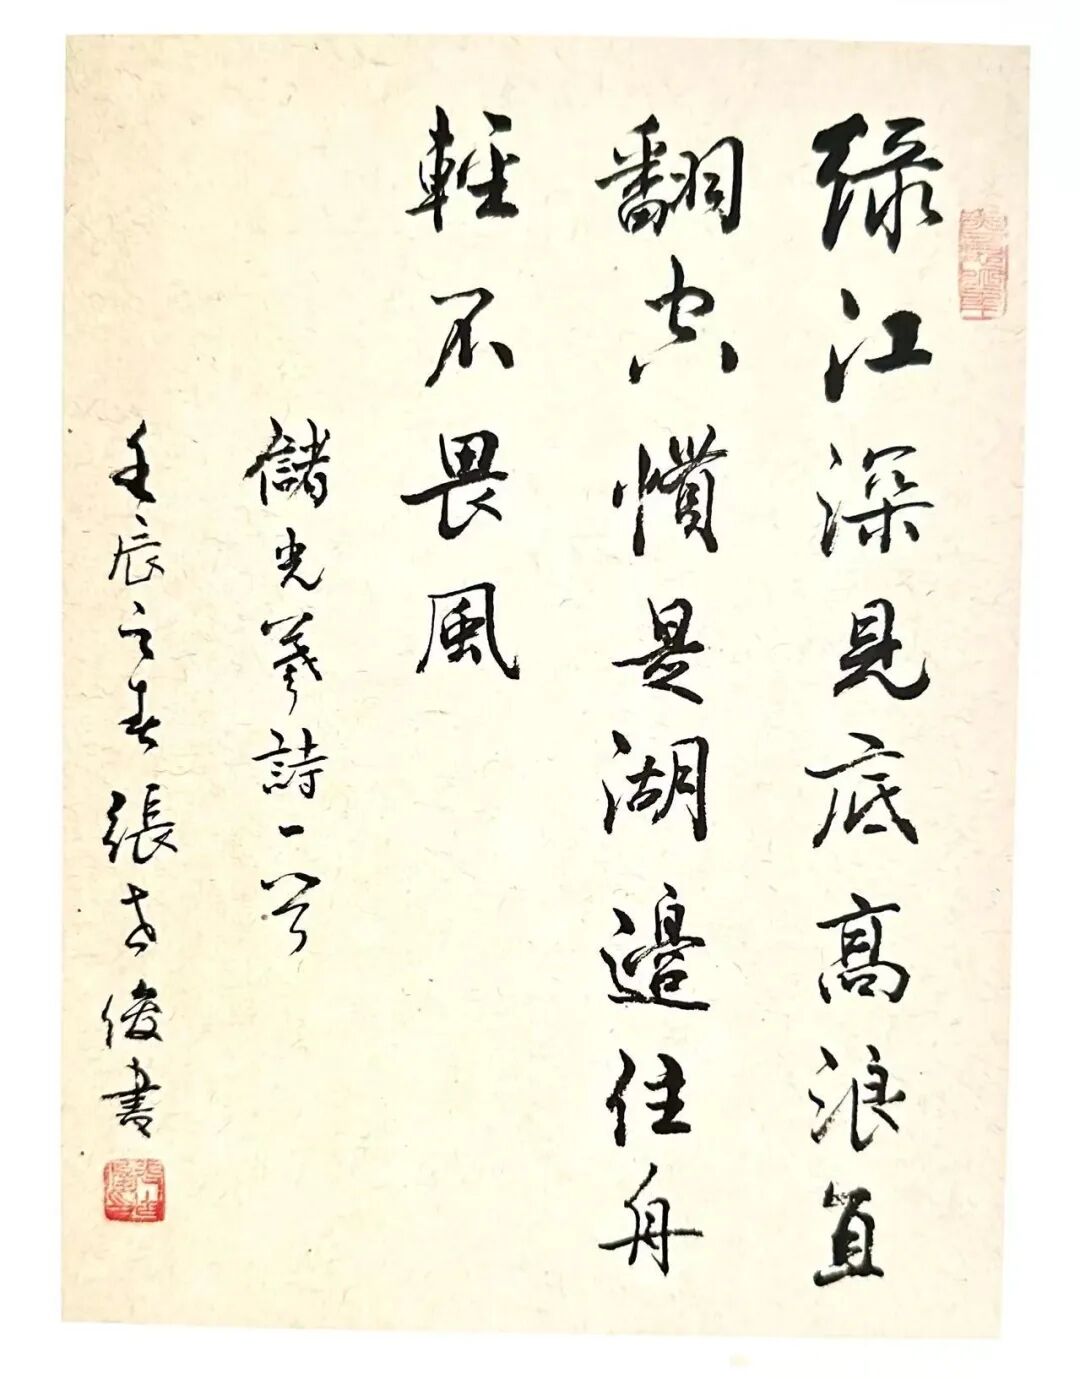 绿江深見底高浪直
翻空慣是湖邊住舟
輕不畏風
儲光羲詩一首
壬辰之春張志俊書